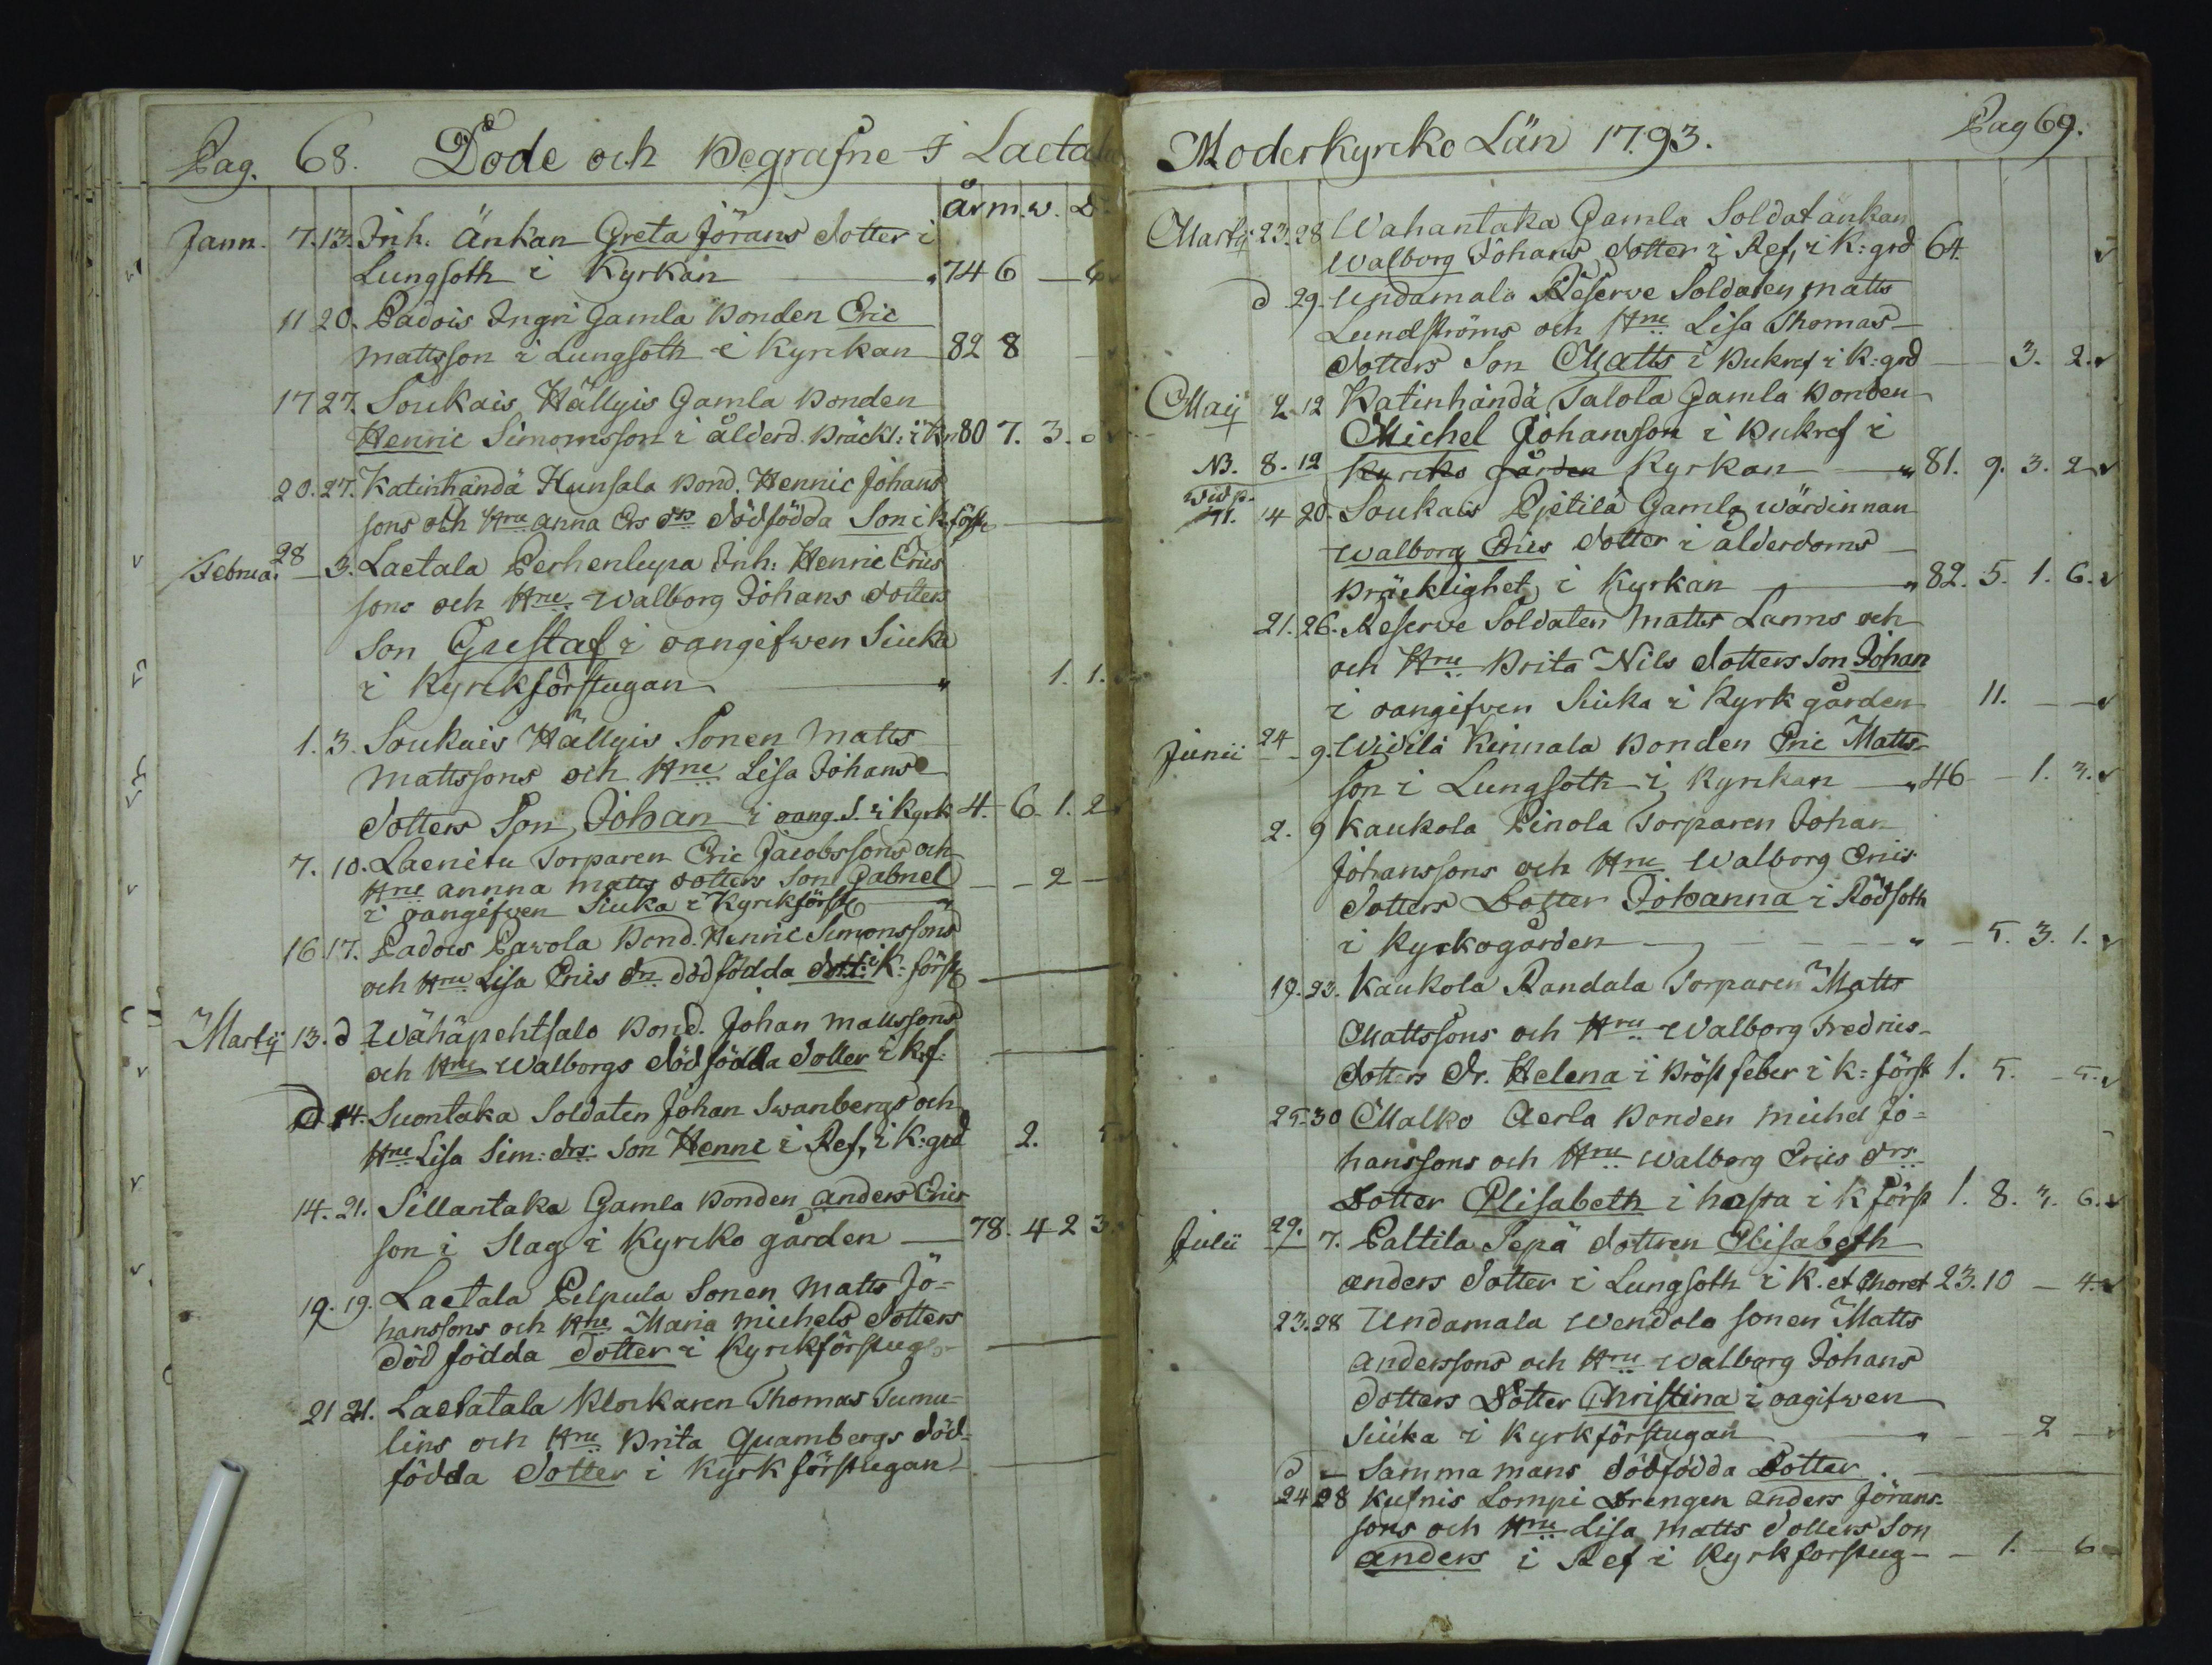 Pag. 68. Döde och Begrafne I Laetala
år m. w. D.
Jann. 7. 13. Inh. Änkan Greta Jörans dotter i
Lungsoth i Kyrkan 74 6 — 6
11 20. Padois Ingri Gamla Bonden Eric
mattsson i Lungsoth i Kyrckan 82 8
17 27. Soukais Hällyis Gamla Bonden
Henric Simonsson i ålderd. bräckl: i Kn 80 7. 3.
20. 27. Katinhändä Hunsala Bond. Henric Johans
sons och Hru anna Ers drs dödfödda Son i K förste
Februa. 28 3. Laetala Perhenlupa Inh: Henric Erics
sons och Hru Walborg Johans dotters
Son Gustaf i oangifwen Siuka
i Kyrckförstugan 1. 1.
1. 3. Soukais Hällyis Sonen Matts
Mattssons och Hru Lisa Johans
dotters Son Johan i oang. S. i Kyrk 4. 6. 1. 2
7. 10. Laenitu Torparen Eric Jacobssons och
Hru annna matts dotters Son Gabriel — — 2 —
i oangifven Siuka i Kyrckförst
16 17. Padois Pavola Bond. Henric Simonssons
och Hru Lisa Erics dr. dödfödda dott: i K: först
Martij 13. d Wähäpehtsalo Bond. Johan mattssons
och Hru Walborgs dödfödda dotter i K.f.
d 14. Suontaka Soldaten Johan Swanbergs och
Hru Lisa Sim: drs: Son Henric i Ref, i K: grd 2. 5
14. 21. Sillantaka Gamla Bonden anders Erics
son i Slag i Kyrcko gården — 78. 4 2 3
19. 19. Laetala Pelpula Sonen Matts Jo=
hanssons och Hru Maria Michels dotters
död födda dotter i Kyrckförstug
21 21. Laetatala Klockaren Thomas Tumu-
lins och Hru Brita Quambergs död=
födda dotter i Kyrk förstugan
Moderkyrcko Län 1793. Pag 69.
Martij 23. 28 Wahantaka Gamla Soldat änkan
Walborg Johans dotter i Ref, i K: grd 64
d 29. Undamala Reserve Soldaten matts
Lundströms och Hru Lisa Thomas
dotters Son Matts i Bukref i K: grd — 3. 2.
Maij 2 12 Katinhändä Talola Gamla Bonden
Michel Johansson i Bukref i
NB. 8. 12 Kyrcko gården Kyrkan 81. 9. 3. 2
wid p.
71. 14 20. Soukais Pietilä Gamla wärdinnan
Walborg Erics dotter i ålderdoms
Bräcklighet, i Kyrkan 82. 5. 1. 6.
21. 26. Reserve Soldaten Matts Lanns och
och Hru Brita Nils dotters Son Johan
i oangifven Siuka i Kyrk gården 11. — —
Junii 24 9. Widilä Kinnala Bonden Eric Matts-
son i Lungsoth i Kyrckan 46 — 1. 3.
2. 9 Kaukola Pinola Torparen Johan
Johanssons och Hru Walborg Erics
dotters Dotter Johanna i Rödsoth
i Kyrckogården — 5. 3. 1.
19. 23. Kaukola Randala Torparen Matts
Mattssons och Hru Walborg Fredrics-
dotters Dr. Helena i Bröst feber i K: först 1. 5. — 5.
25. 30 Malko Aerla Bonden Michel Jo=
hanssons och Hru Walborg Erics drs
Dotter Elisabeth i hosta i K först 1. 8. 3. 6.
Julii 29. 7. Paltila Sepä dottren Elisabeth
anders dotter i Lungsoth i K. et Choret 23. 10 — 4.
23. 28 Undamala Wendola sonen Matts
anderssons och Hru Walborg Johans
dotters Dotter Christina i oagifwen
Siuka i Kyrkförstugan — 2 —
d — Samma mans dödfödda Dotter.
24 28 Kusnis Lompi Drengen Anders Jörans-
sons och Hru Lisa Matts dotters Son
anders i Ref i Kyrkforstug — 1. — 6